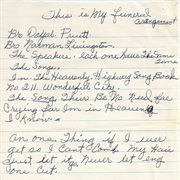 This is My Funeral
arrangement
Bro Dolpel Pruitt
Bro Norman Livingston
The Speakers - each one Have The Same
Time
The Songs
In The Heavenly Highway Song Book
No 211. Wonderful City.
The Song There Be No Need for
Crying For Im in Heavenly
I Know.
An one Thing if I ever
get so I Cant Comb My Hair
Just let it go Never let Eny
one Cut.